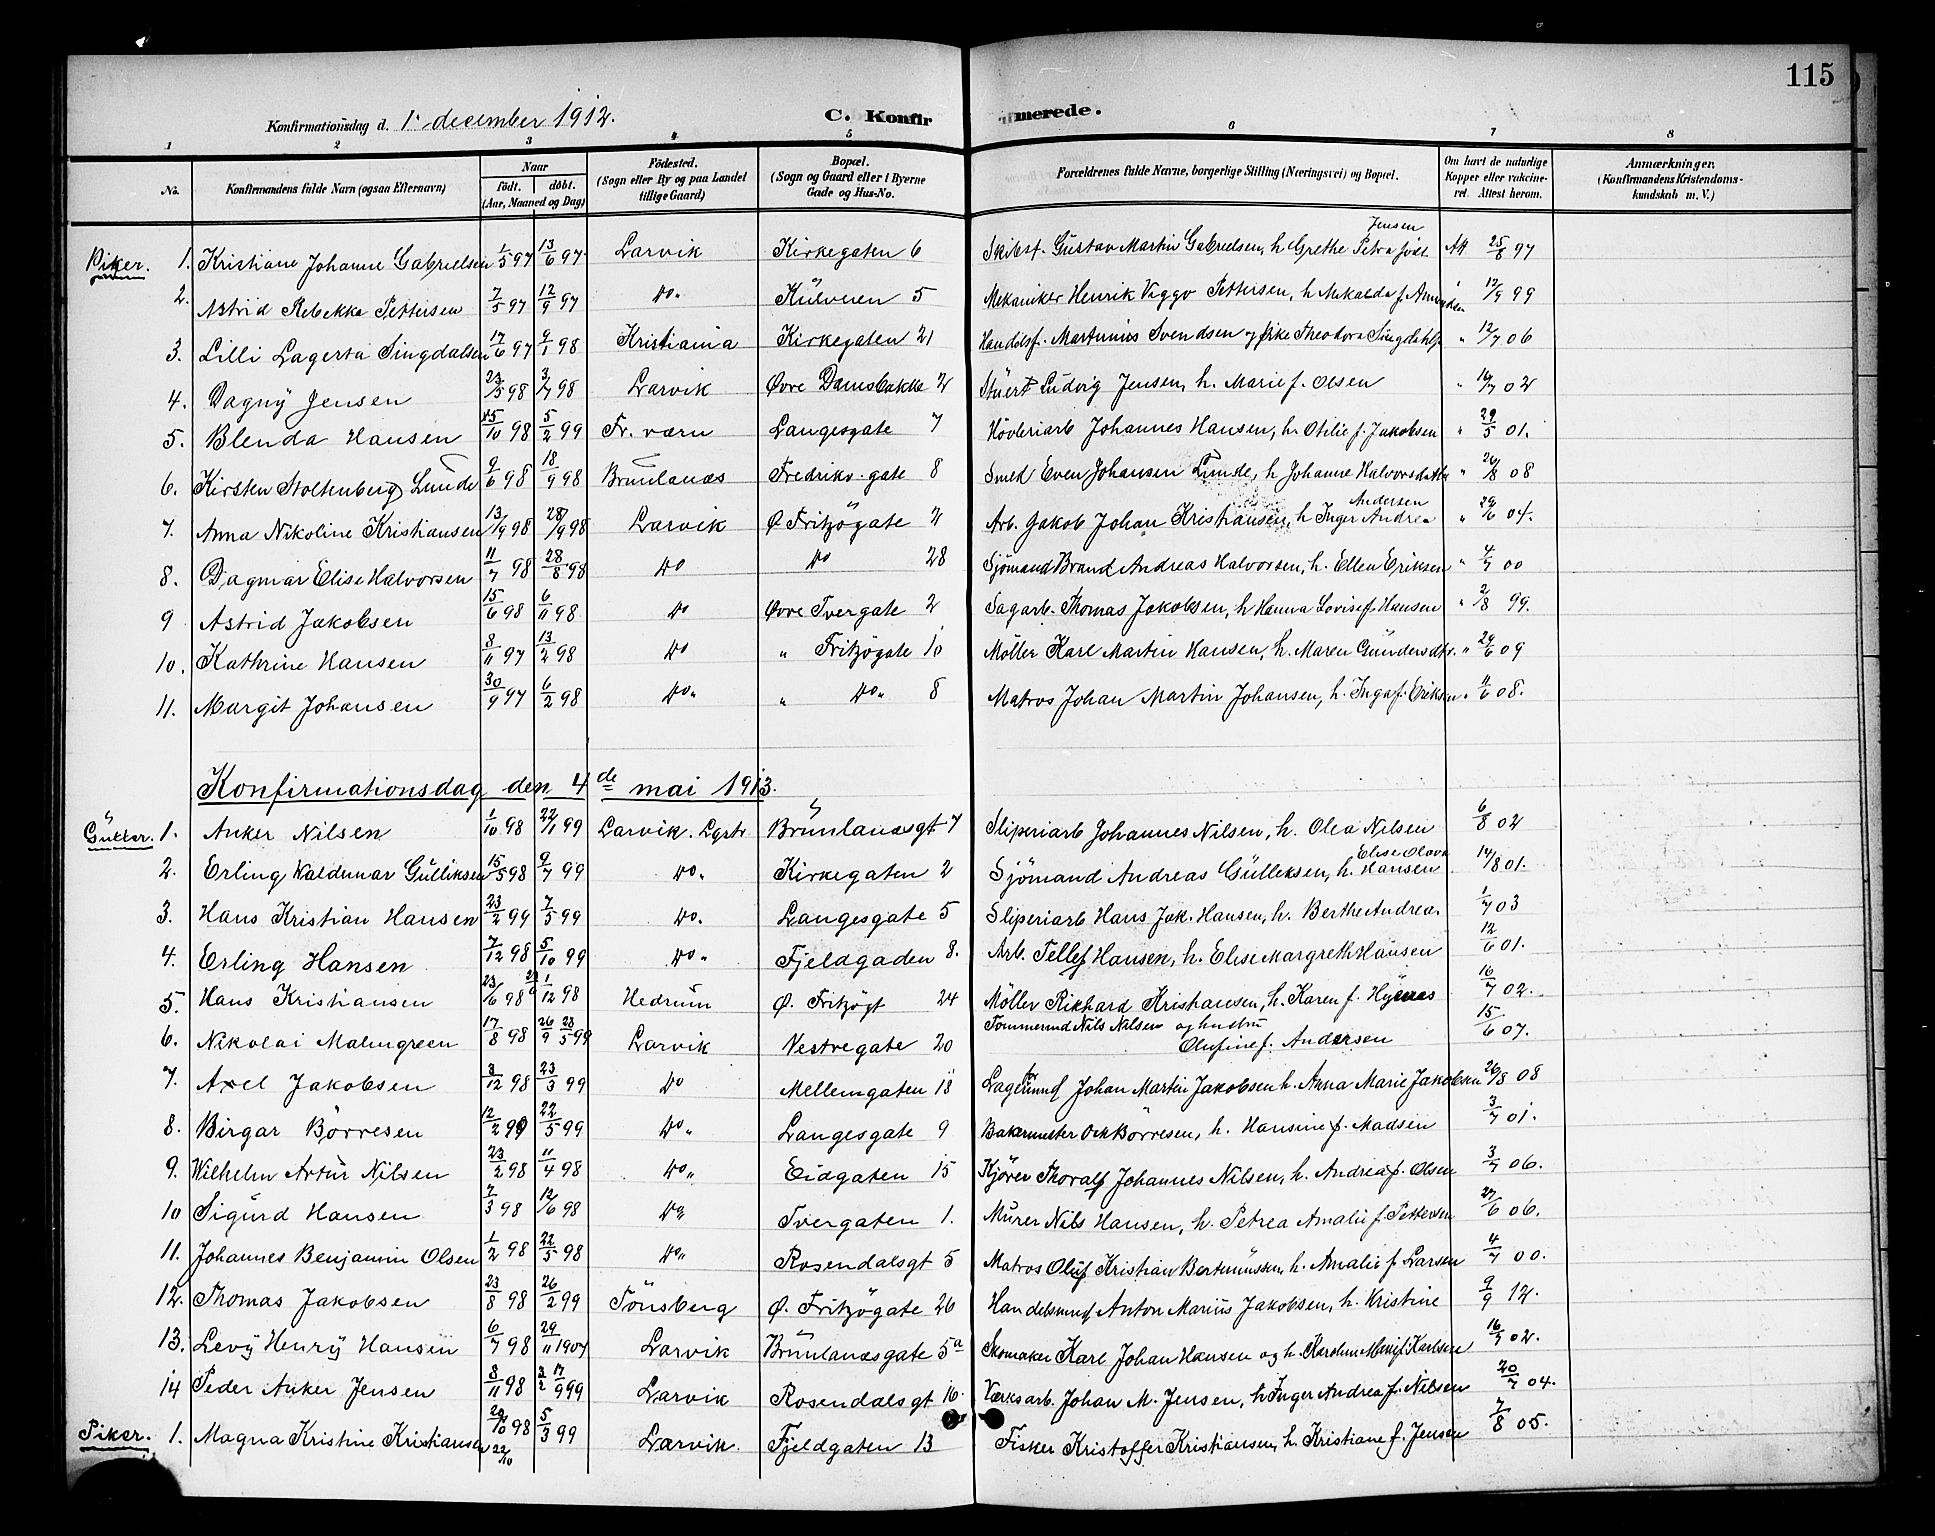 115
Konfirmationsdag d. 1. december 1912. C. Konfirmerede.
1 2 3 4 5 6 7 8
No. Konfirmandens fulde Navn (ogsaa Efternavn) Naar født. døbt. (Aar, Maaned og Dag) Fødested. (Sogn eller By og paa Landet tillige Gaard) Bopæl. (Sogn og Gaard eller i Byerne Gade og Hus-No. Forældrenes fulde Navne, borgerlige Stilling (Næringsvei) og Bopæl. Om havt de naturlige Kopper eller vakcineret. Attest herom. Anmærkninger. (Konfirmandens Kristendomskundskab m. V.)
Piker. 1. Kristiane Johanne Gabrielsen 1/5 97 13/6 97 Larvik Kirkegaten 6 Skibsf. Gustav Martin Gabrielsen, h. Grethe Petra Jensen Att 25/8 97
2. Astrid Rebekka Pettersen 7/5 97 12/9 97 Do. Kulveien 5 Mekaniker Henrik Viggo Pettersen, h. Mekalda f. Amundsen " 13/9 99
3. Lilli Lagerta Singdalsen 17/6 97 9/1 98 Kristiania Kirkegaten 21 Handelsf. Martinius Svendsen og Theodora " 12/7 06
4. Dagny Jensen 23/5 98 3/7 98 Larvik Øvre Damsbakke 2 Stuert Ludvig Jensen, h. Marie f. Olsen " 16/7 02
5. Blenda Hansen 15/10 98 5/2 99 Fr. værn Langesgate 7 Høvleriarb Johannes Hansen, h. Otilie f. Jakobsen " 29/5 01.
6. Kirsten Stoltenberg Lunde 9/6 98 18/9 98 Brunlanæs Fredriksv. gate 8 Smed Even Johansen Lunde, h. Johanne Halvorsdatter " 26/8 08
7. Anna Nikoline Kristiansen 13/9 98 28/9 98 Larvik Ø Fritzøgate 2 Arb. Jakob Johan Kristiansen, h Inger Andrea Andersen " 29/6 04.
8. Dagmar Elise Halvorsen 11/7 98 28/8 98 Do Do 28 Sjømand Brand Andreas Halvorsen, h. Ellen Eriksen " 4/7 00
9 Astrid Jakobsen 15/6 98 6/11 98 Do Øvre Tvergate 2 Sagarb. Thomas Jakobsen, h Hanna Lovise f. Hansen " 2/8 99.
10. Kathrine Hansen 8/11 97 13/2 98 Do " Fritzøgate 10 Møller Karl Martin Hansen, h. Maren Gundersdtr. " 29/6 09
11. Margit Johansen 30/9 97 6/2 98 Do. " Do. 8 Matros Johan Martin Johansen, h. Inga f. Eriksen " 11/6 08.
Konfirmationsdag den 4de mai 1913.
Gutter. 1. Anker Nilsen 1/10 98 22/1 99 Larvik. Lgstr Brunlanæsgt 7 Sliperiarb Johannes Nilsen, h. Olea Nilsen 6/8 02
2. Erling Waldemar Gulliksen 15/5 98 9/7 99 Do. Kirkegaten 2 Sjømand Andreas Gulleksen, h. Elise Olava Hansen 14/8 01.
3. Hans Kristian Hansen 23/2 99 7/5 99 Do. Langesgate 5 Sliperiarb Hans Jak. Hansen, h. Berthe Andrea. 1/7 03
4. Erling Hansen 7/12 98 5/10 99 Do. Fjeldgaden 8. Arb. Tellef Hansen, h. Elise Margreth Hansen 12/6 01.
5. Hans Kristiansen 23/6 98 1/12 98 Hedrum Ø. Fritzøgt 24 Møller Rikhard Kristiansen, h. Karen f. 16/7 02.
6. Nikolai Malmgreen 17/8 98 26/9 28/5 99 Larvik Vestregate 20 Tømmermd Nils Nilsen og hustru Olufine f. Andersen 15/6 07.
7. Axel Jakobsen 3/12 98 23/3 99 Do Mellemgaten 18 Johan Martin Jakobsen h. Anna Marie Jakobsen 26/8 08
8. Birgar Børresen 12/2 99 22/5 99 Do. Langesgate 9 Bakermester Børresen, h. Hansine f. Madsen 3/7 01.
9. Wilhelm Artur Nilsen 23/2 98 11/4 98 Do. Eidgaten 15 Kjører Thoralf Johannes Nilsen, h. Andrea f. Olsen 3/7 06.
10 Sigurd Hansen 7/3 98 12/6 98 Do. Tvergaten 1. Murer Nils Hansen, h. Petrea Amalie f. Pettersen 27/6 06.
11. Johannes Benjamin Olsen 1/2 98 22/5 98 Do. Rosendalsgt 5 Matros Oluf Kristian Bertinussen, h. Amalie f. Larsen 4/7 00.
12. Thomas Jakobsen 23/8 98 26/2 99 Tönsberg Ø. Fritzøgate 26 Handelsmd Anton Marius Jakobsen, h. Kristine 9/9 12.
13. Levy Henry Hansen 6/7 98 29/11 1907 Larvik Brunlanæsgate 5a Skomaker Karl Johan Hansen og h. Karoline f. Karlsen 16/7 02.
14 Peder Anker Jensen 8/11 98 3/2 17/9 99 Larvik Rosendalsgt 16. Værksarb. Johan M. Jensen, h. Inger Andrea f. Nilsen 20/7 04.
Piker. 1. Magna Kristine Kristiansen 20/10 98 22/10 5/3 99 Larvik. Fjeldgaten 13 Fisker Kristoffer Kristiansen, h. Kristiane f. Jensen 7/8 05.